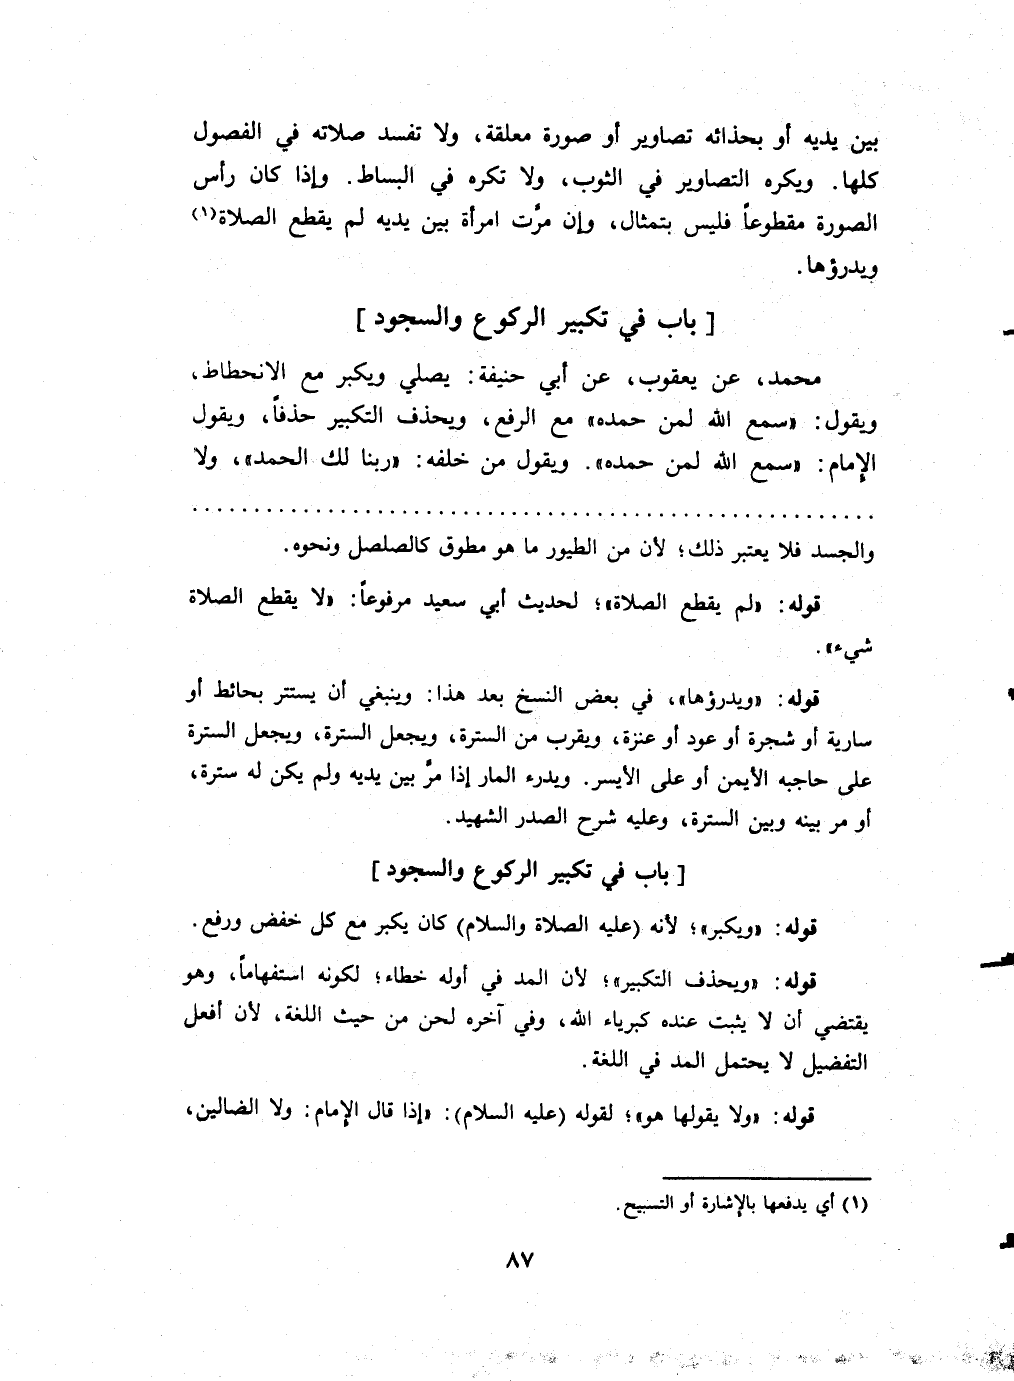 بين يديه أو بحذائه تصاوير أو صورة معلقة، ولا تفسد صلاته في الفصول
كلها. ويكره التصاوير في الثوب، ولا تكره في البساط. وإذا كان رأس
الصورة مقطوعاً فليس بتمثال، وإن مرَّت امرأة بين يديه لم يقطع الصلاة(١)
ويدرؤها.
[ باب في تكبير الركوع والسجود ]
محمد، عن يعقوب، عن أبي حنيفة: يصلي ويكبر مع الانحطاط،
ويقول: «سمع الله لمن حمده» مع الرفع، ويحذف التكبير حذفاً، ويقول
الإمام: «سمع الله لمن حمده». ويقول من خلفه: «ربنا لك الحمد»، ولا
والجسد فلا يعتبر ذلك؛ لأن من الطيور ما هو مطوق كالصلصل ونحوه.
قوله: «لم يقطع الصلاة»؛ لحديث أبي سعيد مرفوعاً: «لا يقطع الصلاة
شيء».
قوله: «ويدرؤها»، في بعض النسخ بعد هذا: وينبغي أن يستتر بحائط أو
سارية أو شجرة أو عود أو عنزة، ويقرب من السترة، ويجعل السترة، ويجعل السترة
على حاجبه الأيمن أو على الأيسر. ويدرء المار إذا مرَّ بين يديه ولم يكن له سترة،
أو مر بينه وبين السترة، وعليه شرح الصدر الشهيد.
[ باب في تكبير الركوع والسجود ]
قوله: «ويكبر»؛ لأنه (عليه الصلاة والسلام) كان يكبر مع كل خفض ورفع.
قوله: «ويحذف التكبير»؛ لأن المد في أوله خطاء؛ لكونه استفهاماً، وهو
يقتضي أن لا يثبت عنده كبرياء الله، وفي آخره لحن من حيث اللغة، لأن أفعل
التفضيل لا يحتمل المد في اللغة.
قوله: «ولا يقولها هو»؛ لقوله (عليه السلام): «إذا قال الإمام: ولا الضالين،
(١) أي يدفعها بالإشارة أو التسبيح.
٨٧